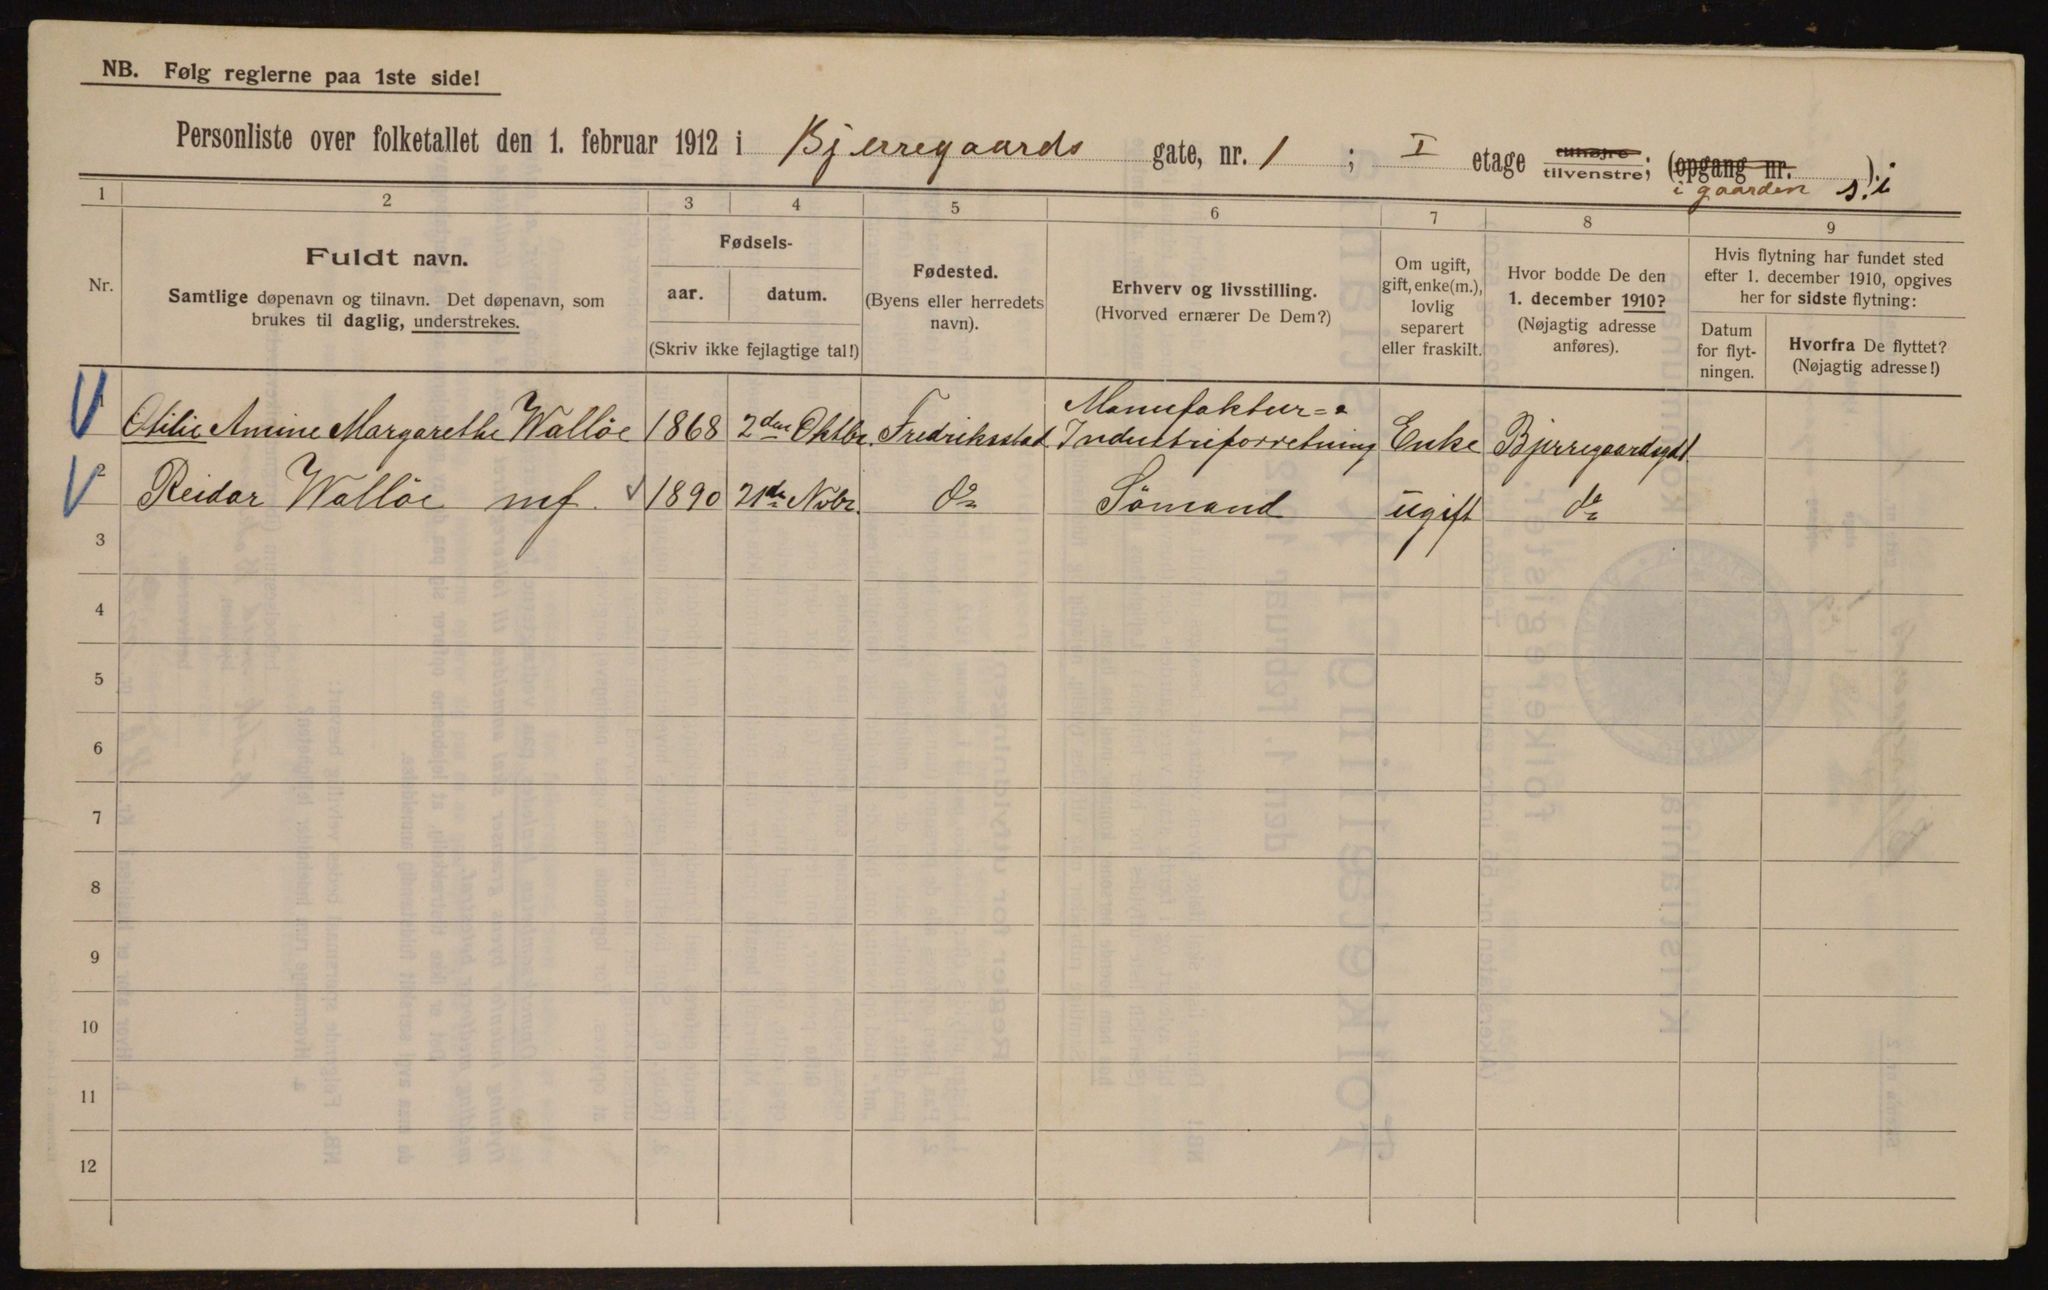 NB. Følg reglerne paa 1ste side!
Personliste over folketallet den 1. februar 1912 i Bjerregaards gate, nr. 1 ; I etage tilhøjre tilvenstre; (opgang nr. );
i gaarden
1 2 3 4 5 6 7 8 9
Nr.
Fuldt navn.
Samtlige døpenavn og tilnavn. Det døpenavn, som
brukes til daglig, understrekes.
Fødsels-
aar. datum.
(Skriv ikke fejlagtige tal!)
Fødested.
(Byens eller herredets
navn).
Erhverv og livsstilling.
(Hvorved ernærer De Dem?)
Om ugift,
gift, enke(m.),
lovlig
separert
eller fraskilt.
Hvor bodde De den
1. december 1910?
(Nøjagtig adresse
anføres).
Hvis flytning har fundet sted
efter 1. december 1910, opgives
her for sidste flytning:
Datum
for flyt-
ningen.
Hvorfra De flyttet?
(Nøjagtig adresse!)
1 Otilie Amine Margarethe Walløe 1868 2den Oktbr. Fredriksstad Manufaktur= Industriforretning Enke Bjerregaardsgd 1
2 Reidar Walløe mf. 1890 21de Nvbr. do Sömand ugift do
3
4
5
6
7
8
9
10
11
12